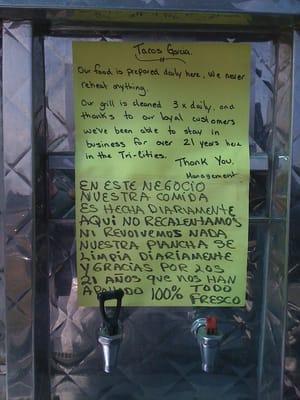 Tacos Garcia.
Our food is prepared daily here, We never
reheat anything.
Our grill is cleaned 3x daily, and
thanks to our loyal customers
we've been able to stay in
business for over 21 years here
in the Tri-Cities.
Thank You,
Management
EN ESTE NEGOCIO
NUESTRA COMIDA
ES HECHA DIARIAMENTE
AQUI NO RECALENTAMOS
NI REVOLVEMOS NADA
NUESTRA PLANCHA SE
LIMPIA DIARIAMENTE
Y GRACIAS POR LOS
21 AÑOS QUE NOS HAN
APOYADO 100% TODO
FRESCO